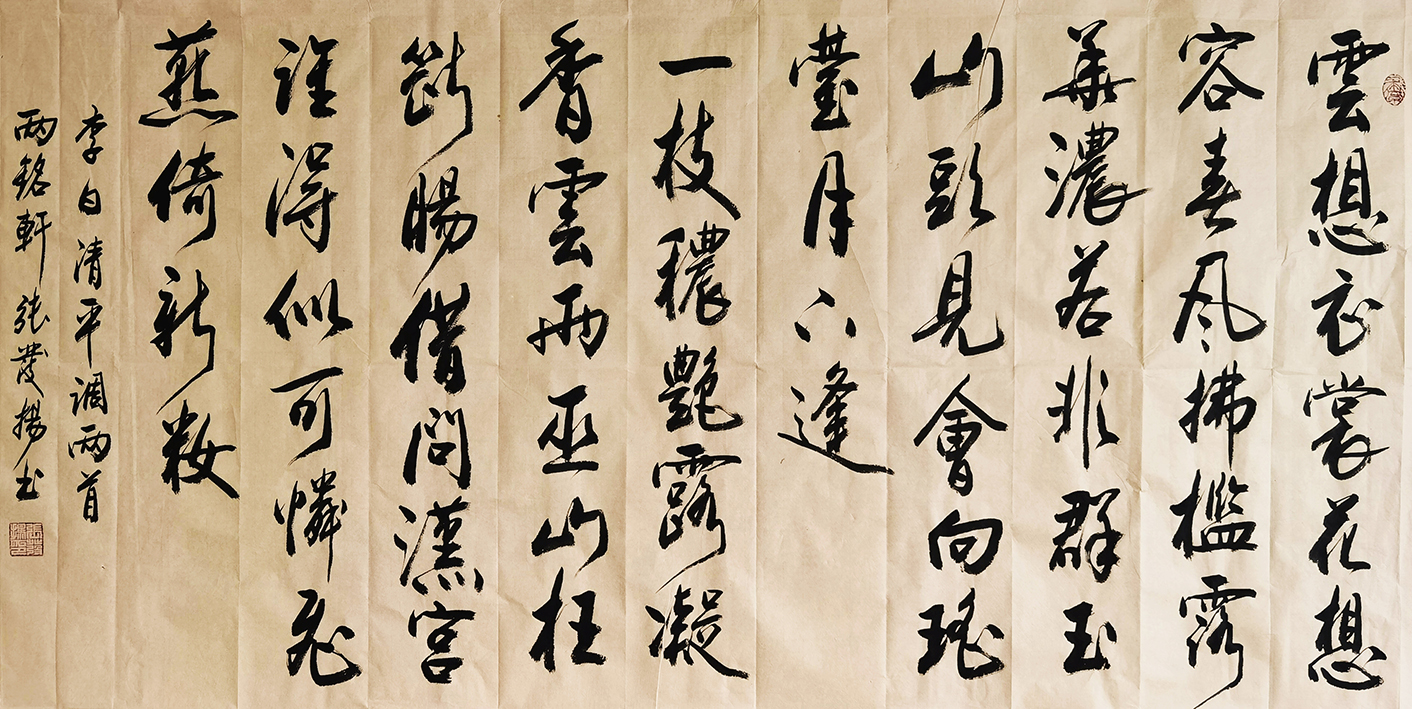 雲想衣裳花想
容春風拂檻露
華濃若非群玉
山頭見會向瑤
臺月下逢
一枝穠艷露凝
香雲雨巫山枉
斷腸借問漢宮
誰得似可憐飛
燕倚新妝
李白清平調兩首
兩銘軒張發揚書